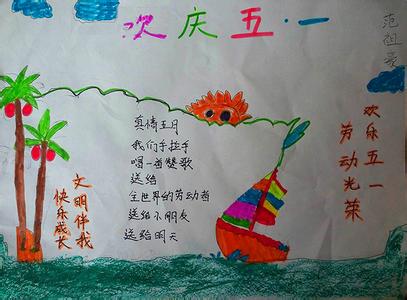 欢庆五·一
真情五月
我们手拉手
唱一首赞歌
送给
全世界的劳动者
送给小朋友
送给明天
欢乐五一
劳动光荣
文明伴我
快乐成长